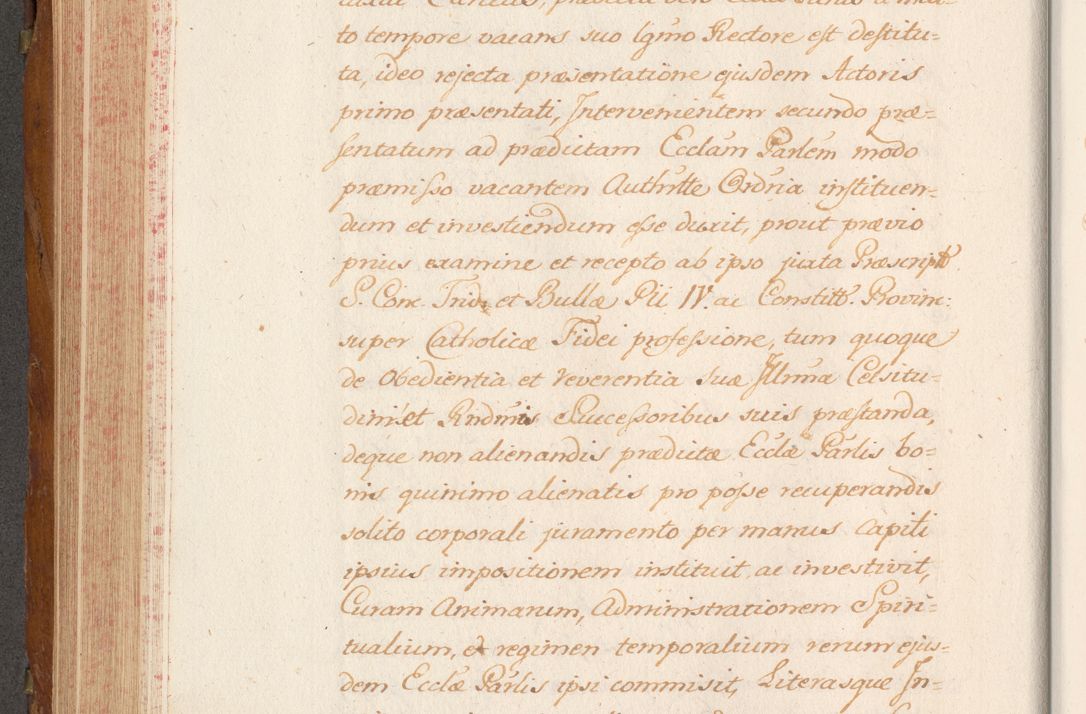 to tempore vacans suo lgmo Rectore est destitu-
ta, ideo rejecta præsentatione ejusdem Actoris
primo præsentati, Intervenientem secundo præ=
sentatum ad prædictam Ecclam Parlem modo
præmisso vacantem Authtte Ordria instituen-
dum et investiendum esse duxit, prout prævio
prius examine et recepto ab ipso juxta Præscript
S. Conc. Trid. et Bullæ Pii IV. ac Constitt. Provin:
super Catholicæ Fidei professione, tum quoque
de Obedientia et reverentia suæ Illrmæ Celsitu-
dini et Rndmis Successoribus suis præstanda,
deque non alienandis prædictæ Ecclæ Parlis bo=
nis quinimo alienatis pro posse recuperandis
solito corporali juramento per manus capiti
ipsius impositionem instituit, ac investivit,
Curam Animarum, Administrationem Spiri-
tualium, et regimen temporalium rerum ejus-
dem Ecclæ Parlis ipsi commisit, Literasque In-